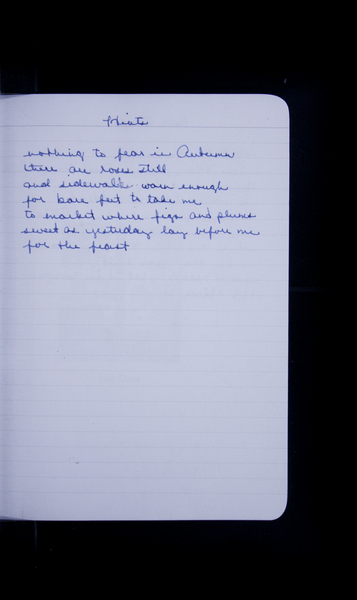 Hiatus
nothing to fear in Autumn
there are roses still
and sidewalks warm enough
for bare feet to take me
to market where figs and plums
sweet as yesterday lay before me
for the feast